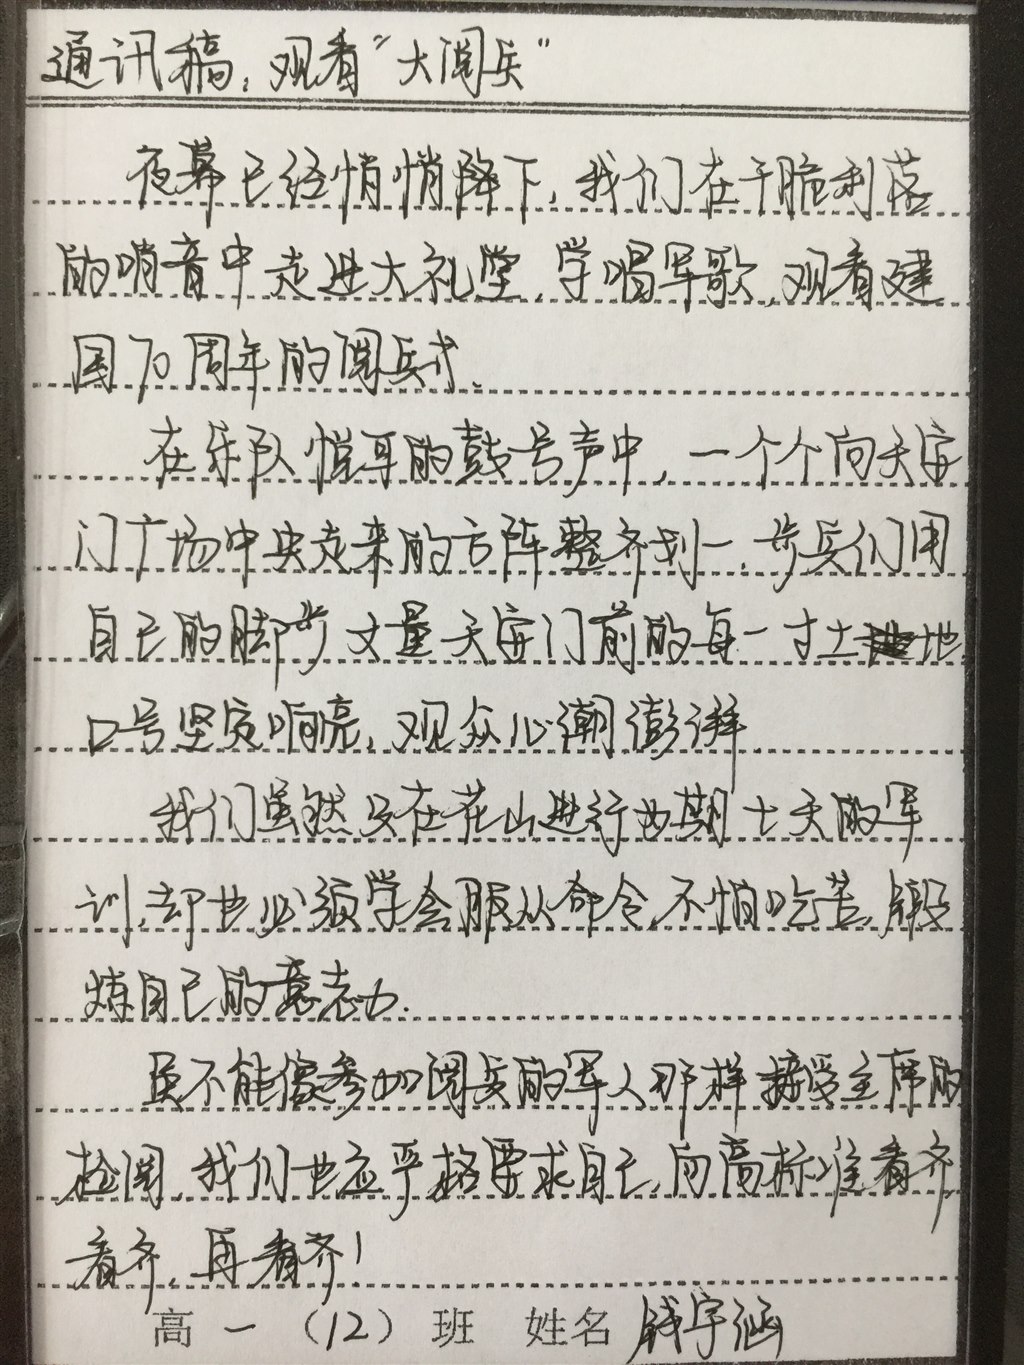 通讯稿：观看“大阅兵”
夜幕已经悄悄降下，我们在干脆利落
的哨音中走进大礼堂，学唱军歌，观看建
国70周年的阅兵式。
在乐队悦耳的鼓号声中，一个个向天安
门广场中央走来的方阵整齐划一，步兵们用
自己的脚步丈量天安门前的每一寸土地，
口号坚定响亮，观众心潮澎湃
我们虽然只在花山进行为期七天的军
训，却也必须学会服从命令，不怕吃苦，锻
炼自己的意志力．
虽不能像参加阅兵的军人那样接受主席的
检阅，我们也应严格要求自己，向高标准看齐，
看齐，再看齐！
高一（12）班 姓名 钱宇涵